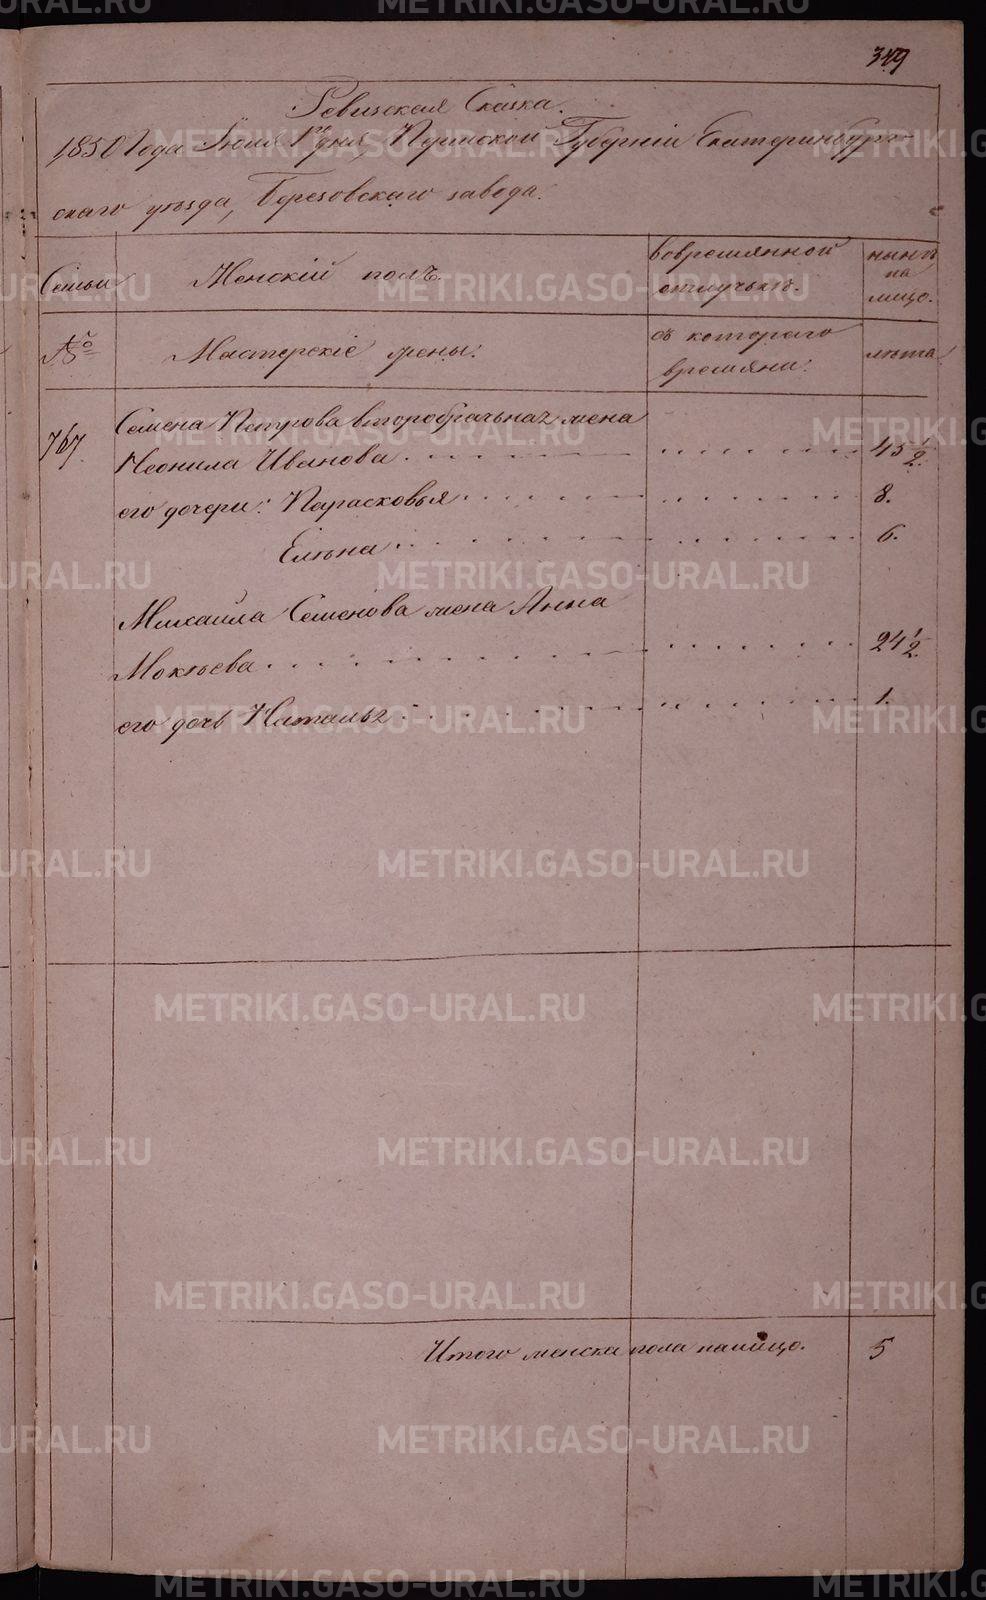 349
Ревизская Сказка.
1850 Года Июня 1го дня, Пермской Губерніи Екатеринбург-
скаго уѣзда, Березовскаго завода.
Семьи
Женскій полъ.
вовремянной отлучькѣ.
нынѣ на лицо.
№
Мастерскіе жены:
съ котораго времяни:
лѣта
767.
Семена Петрова второбрачьная жена
Неонила Иванова 45 1/2.
его дочери: Парасковья 8.
Елѣна 6.
Михаила Семенова жена Анна
Мокѣева 24 1/2.
его дочь Наталья 1.
Итого женска пола налицо. 5
METRIKI.GASO-URAL.RU